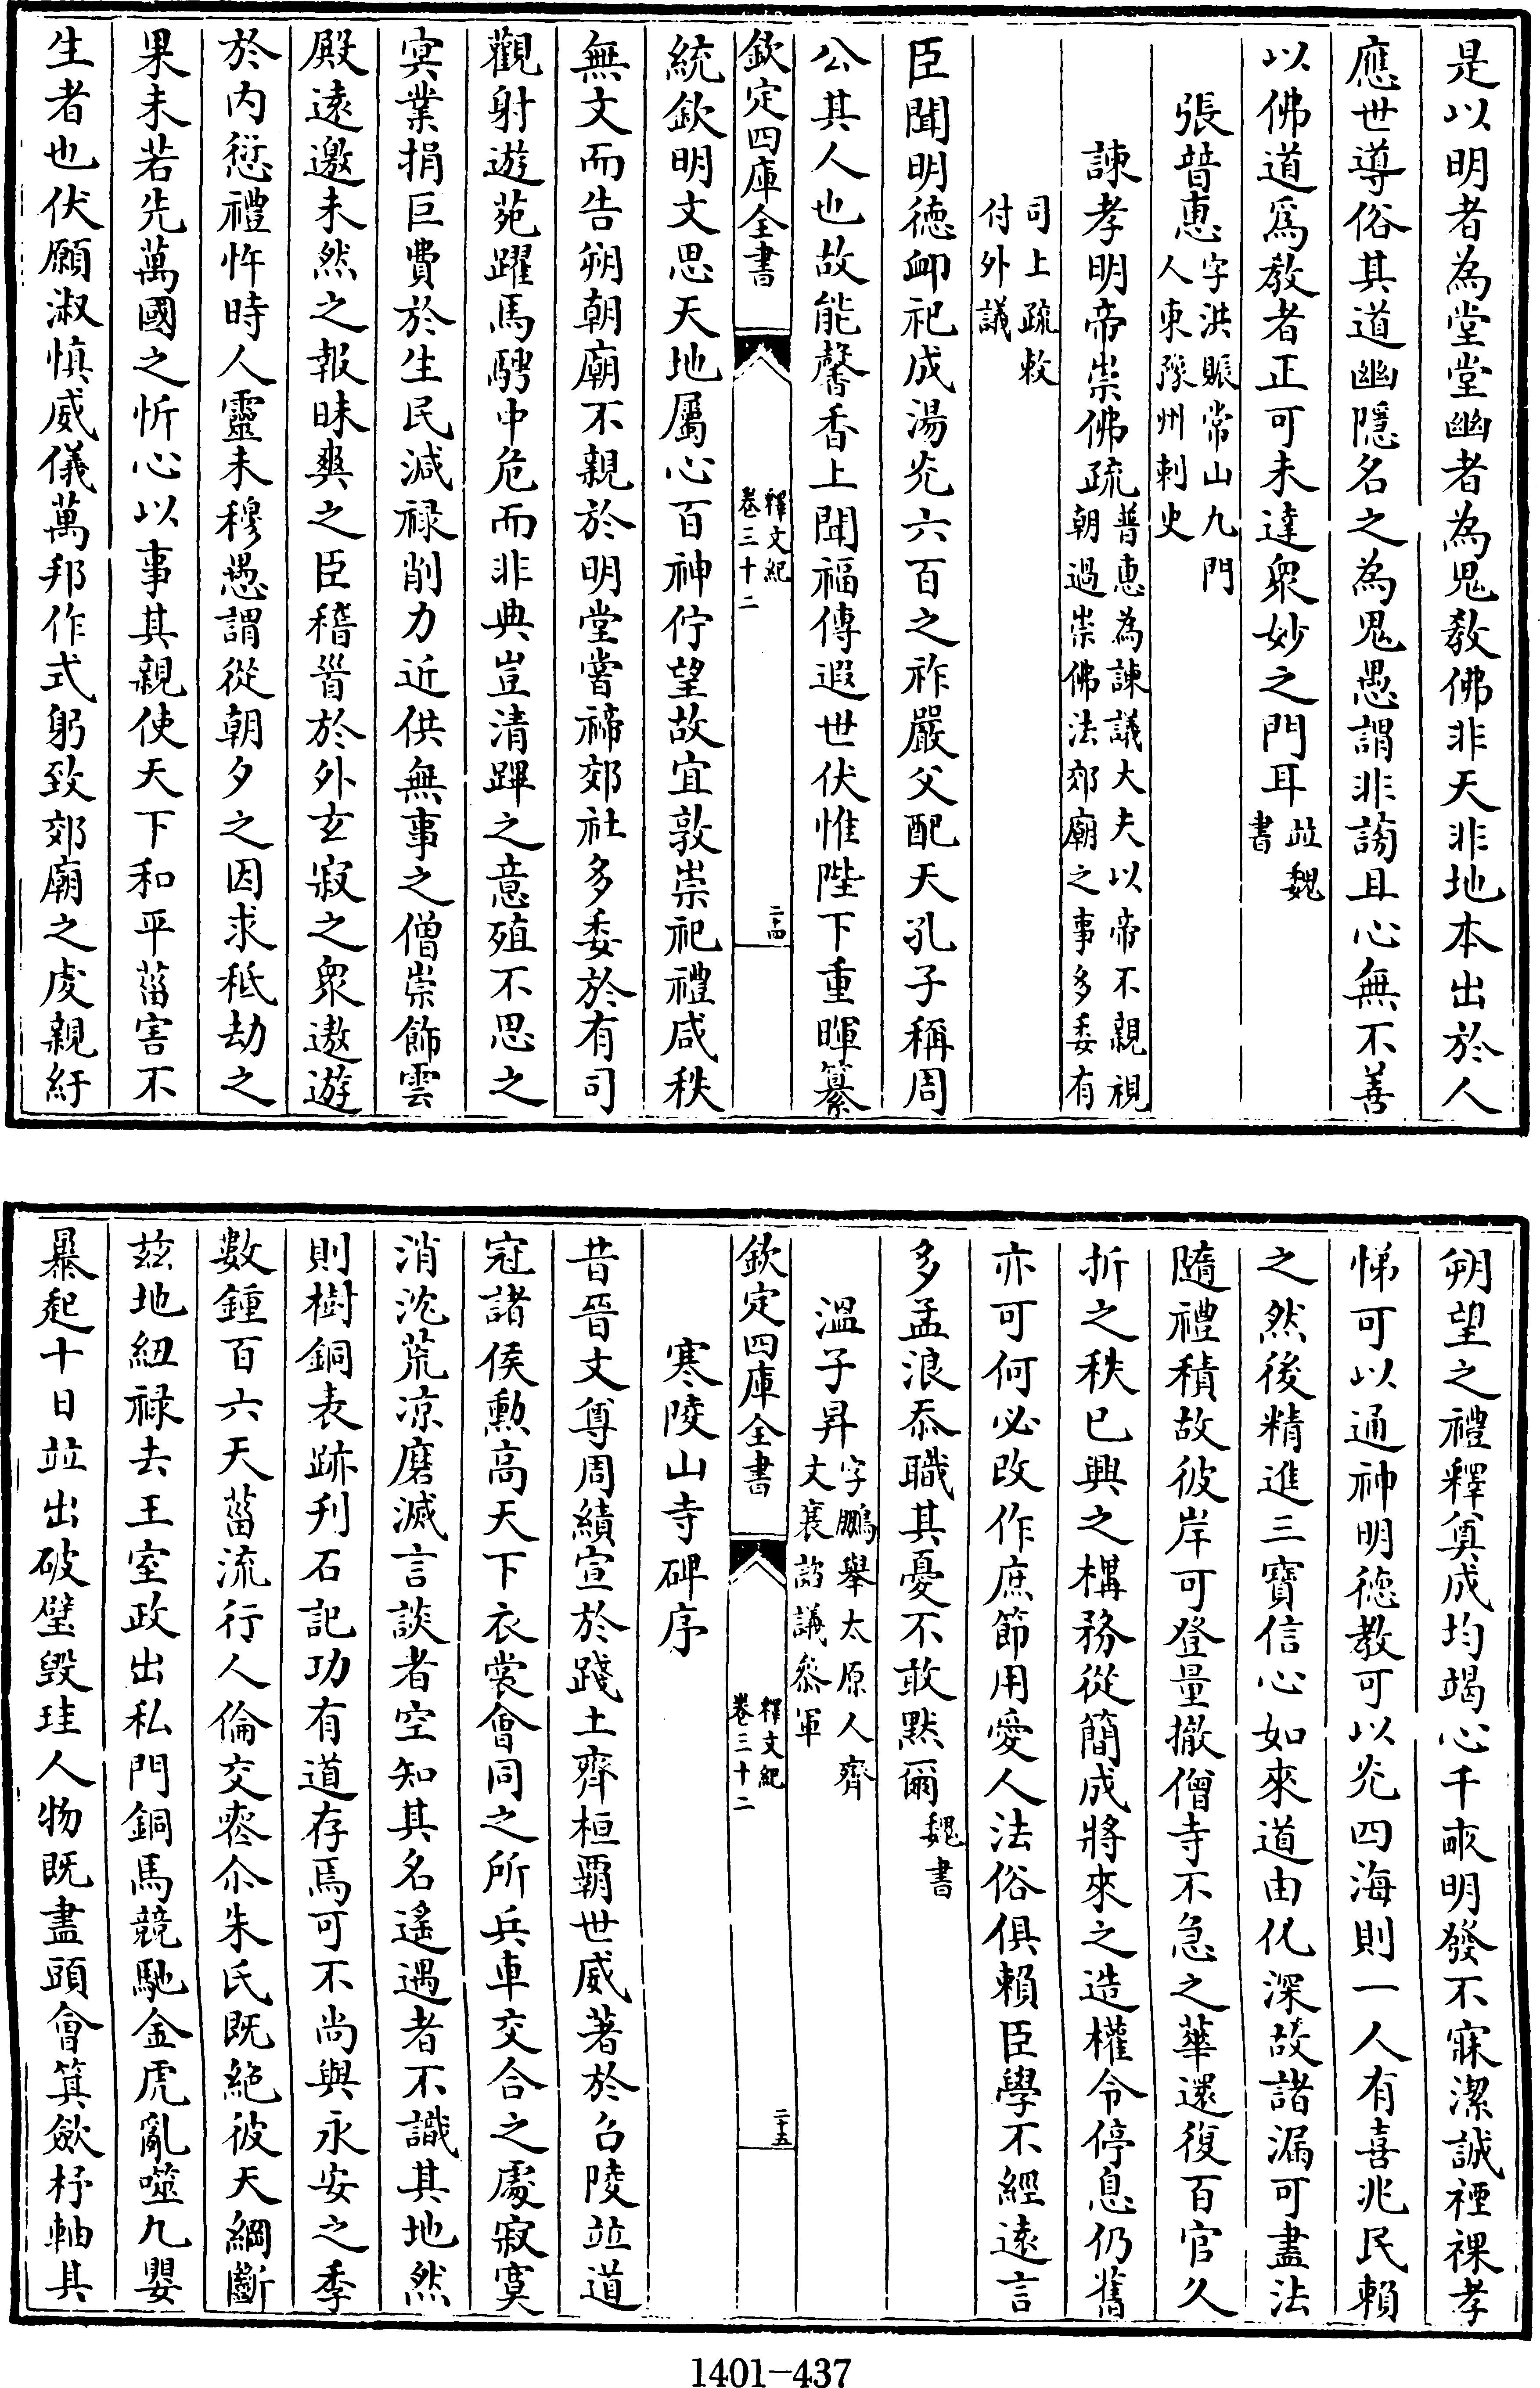 是以明者為堂堂幽者為鬼教佛非天非地本出於人
應世導俗其道幽隱名之為鬼愚謂非謗且心無不善
以佛道爲教者正可未達衆妙之門耳並魏
書
張普惠字洪賑常山九門
人東豫州刺史
諫孝明帝崇佛疏普惠為諫議大夫以帝不親視
朝過崇佛法郊廟之事多委有
司上疏敕
付外議
臣聞明德卹祀成湯光六百之祚嚴父配天孔子稱周
公其人也故能馨香上聞福傳遐世伏惟陛下重暉纂
統欽明文思天地屬心百神佇望故宜敦崇祀禮咸秩
無文而告朔朝廟不親於明堂嘗禘郊社多委於有司
觀射遊苑躍馬騁中危而非典豈清蹕之意殖不思之
冥業捐巨費於生民減祿削力近供無事之僧崇飾雲
殿遠邀未然之報昧爽之臣稽首於外玄寂之衆遨遊
於内愆禮忤時人靈未穆愚謂從朝夕之因求秪劫之
果未若先萬國之忻心以事其親使天下和平菑害不
生者也伏願淑慎威儀萬邦作式躬致郊廟之虔親紆
欽定四庫全書
釋文紀
卷三十二
二十四
朔望之禮釋奠成均竭心千畝明發不寐潔誠禋祼孝
悌可以通神明德教可以光四海則一人有喜兆民賴
之然後精進三寶信心如來道由化深故諸漏可盡法
隨禮積故彼岸可登量撤僧寺不急之華還復百官久
折之秩已興之構務從簡成將來之造權令停息仍舊
亦可何必改作庶節用愛人法俗俱賴臣學不經遠言
多孟浪忝職其憂不敢默爾魏書
溫子昇字鵬舉太原人齊
文襄諮議參軍
寒陵山寺碑序
昔晉文尊周績宣於踐土齊桓霸世威著於召陵並道
冠諸侯勲高天下衣裳會同之所兵車交合之處寂寞
消沈荒涼磨滅言談者空知其名遙遇者不識其地然
則樹銅表跡刋石記功有道存焉可不尚與永安之季
數鍾百六天菑流行人倫交喪尒朱氏既絶彼天綱斷
茲地紐祿去王室政出私門銅馬競馳金虎亂噬九嬰
暴起十日並出破璧毀珪人物既盡頭會箕斂杼軸其
欽定四庫全書
釋文紀
卷三十二
二十五
1401-437